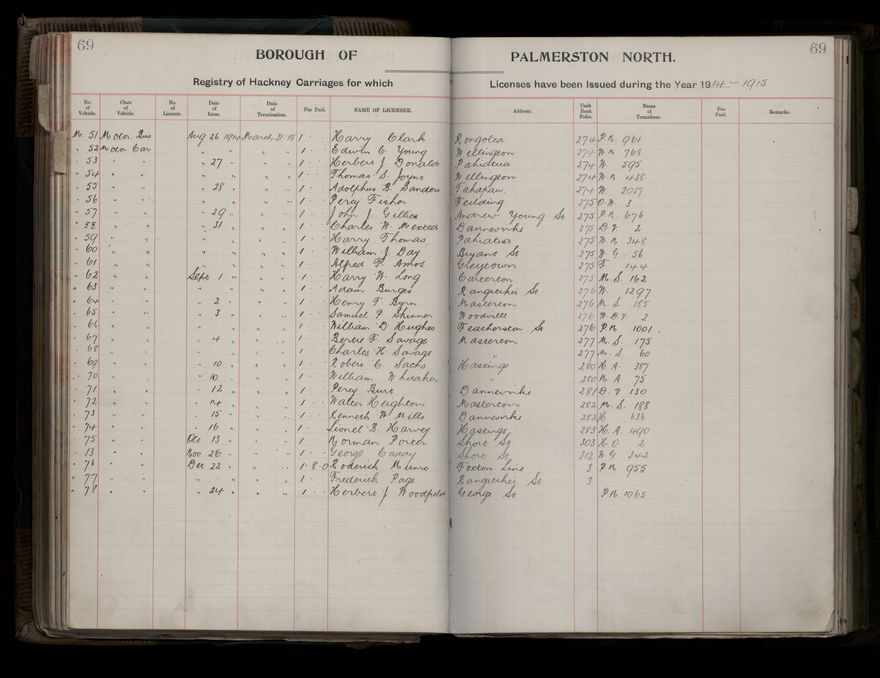 69
BOROUGH OF PALMERSTON NORTH.
69
Registry of Hackney Carriages for which Licenses have been Issued during the Year 1914 – 1915.
No. of Vehicle. Class of Vehicle. No. of License. Date of Issue. Date of Termination. Fee Paid. NAME OF LICENSEE. Address. Cash Book Folio. Name of Transferee. Fee Paid. Remarks.
M. 51 Motor Bus Aug 26 1914 March 31 15 1 Harry Clark Rongotea 274 P.N. 961
" 52 Motor Car " " " " 1 Edwin C. Young Wellington 274 W.N. 768
53 " " " 27 " " " 1 Herbert J. Donald Pahiatua 274 W. 595
" 54 " " " " " " 1 Thomas S. Wellington 274 W.N. 438
" 55 " " " 28 " " " 1 Adolphus B. Sanders 274 W. 2017
" 56 " " " " " " 1 Percy Fisher Feilding 275 3
" 57 " " " 29 " " " 1 John J. Gillies Andrew Young St 275 P.N. 676
" 58 " " " 31 " " " 1 Charles W. Dannevirke 275 D.V. 2
" 59 " " " " " " 1 Harry Thomas Pahiatua 275 W.N. 348
" 60 " " " " " " 1 William J. Day Bryant St 275 W.G. 56
" 61 " " " " " " 1 Alfred F. Amos Greytown 275 F 144
" 62 " " Sept 1 " " " 1 Harry W. Long Carterton 275 M.S. 162
" 63 " " " " " " 1 Adam Burges Rangitikei St 276 W. 1297
" 64 " " " 2 " " " 1 Henry T. Byrn Masterton 276 M.S. 185
" 65 " " " 3 " " " 1 Samuel P. Skinner Woodville 276 2
" 66 " " " " " 1 William D. Hughes Featherston St 276 P.N. 1001
" 67 " " " 4 " " " 1 F. Savage Masterton 277 M.S. 175
" 68 " " " " " 1 Charles H. Savage " 277 M.S. 60
" 69 " " " 10 " " " 1 Robert C. Sachs Hastings 280 H.A. 387
" 70 " " " 10 " " " 1 William Whitaker " 280 H.A. 75
" 71 " " " 12 " " " 1 Percy Burt Dannevirke 281 D.V. 130
" 72 " " " 14 " " " 1 Walter Heighton Masterton 282 M.S. 188
" 73 " " " 15 " " " 1 Kenneth W. Mills Dannevirke 282 636
" 74 " " " 16 " " " 1 Lionel B. Harvey Hastings 283 H.A. 490
" 75 " " Oct 13 " " " 1 Norman Porter Short St 303 2
" 13 " " Nov 26 " " " 1 George Short St 312 W.G. 342
" 76 " " Dec 22 " " " 1 8 0 Roderick Munro Foxton Line 3 P.N. 955
" 77 " " " " " " 1 Frederick Page Rangitikei St 3
" 78 " " " 24 " " " 1 Herbert J. Woodfield George St P.N. 1065